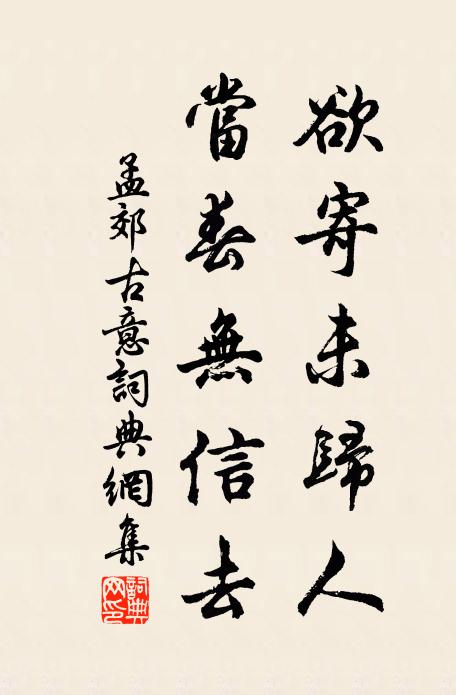 欲寄未歸人
當春無信去
孟郊古意詞典網集
詞典
网印